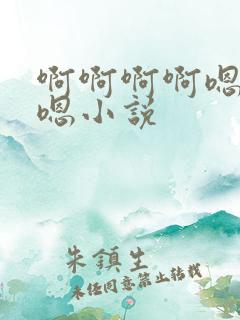 啊啊啊啊嗯
嗯小说
朱镇生
未经同意禁止转载